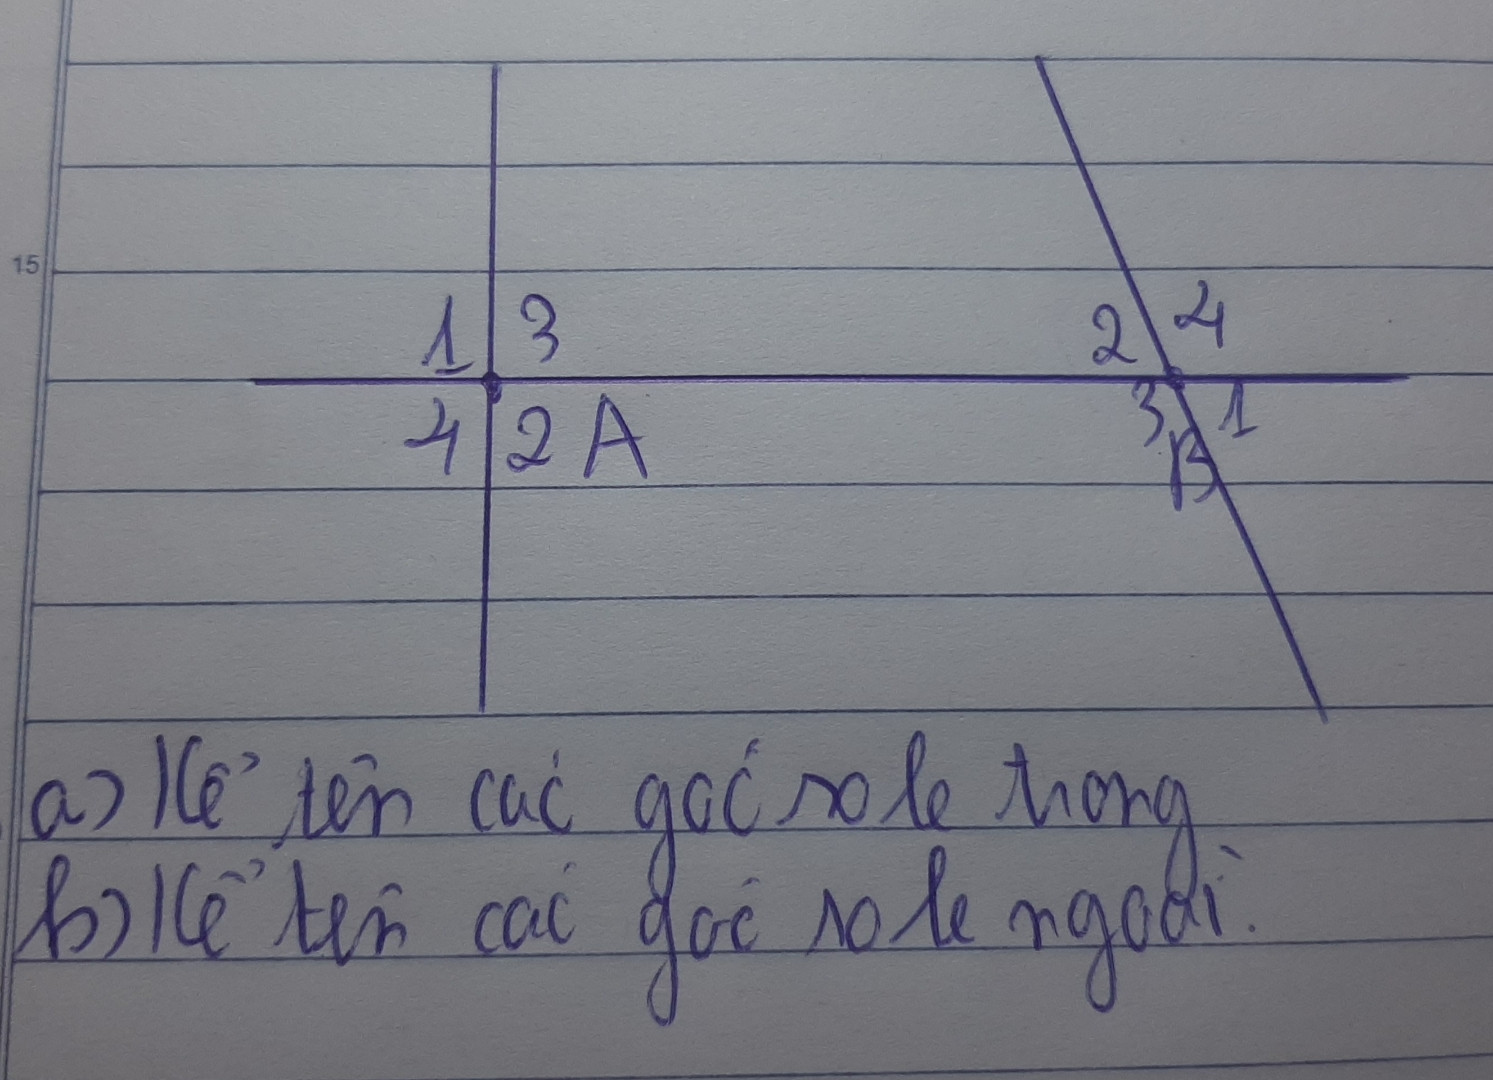 15
1 3 2 4
4 2 A 3 B 1
a) Kể tên các góc so le trong
b) Kể tên các góc so le ngoài.